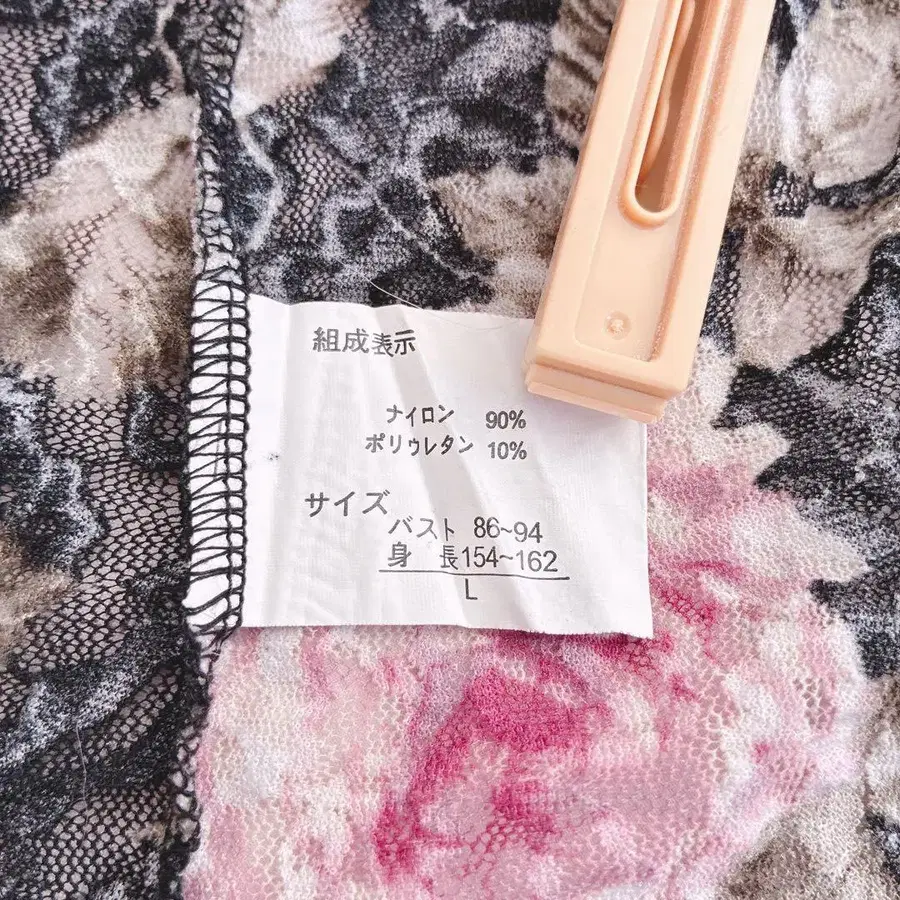 組成表示
ナイロン 90%
ポリウレタン 10%
サイズ
バスト 86~94
身 長154~162
L